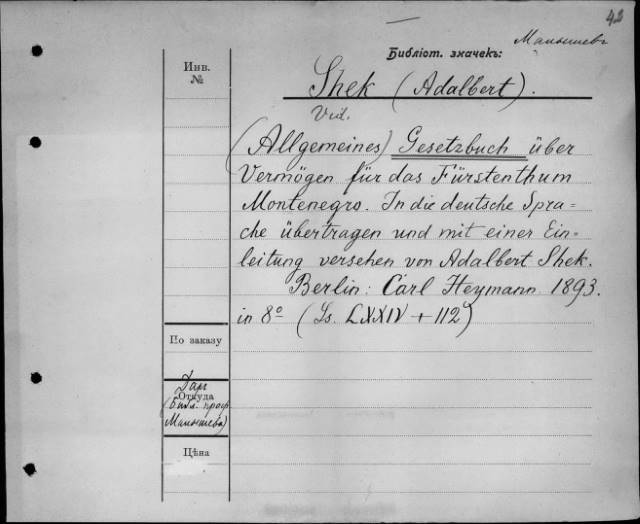 42
Малышевъ
Библіот. значекъ:
Инв.
№
Shek (Adalbert).
Vid.
(Allgemeines) Gesetzbuch über
Vermögen für das Fürstenthum
Montenegro. In die deutsche Spra=
che übertragen und mit einer Ein=
leitung versehen von Adalbert Shek.
Berlin: Carl Heymann 1893.
in 8º (Ss. LXXIV + 112)
По заказу
Даръ
Откуда
(Библ. проф.
Малышева)
Цѣна